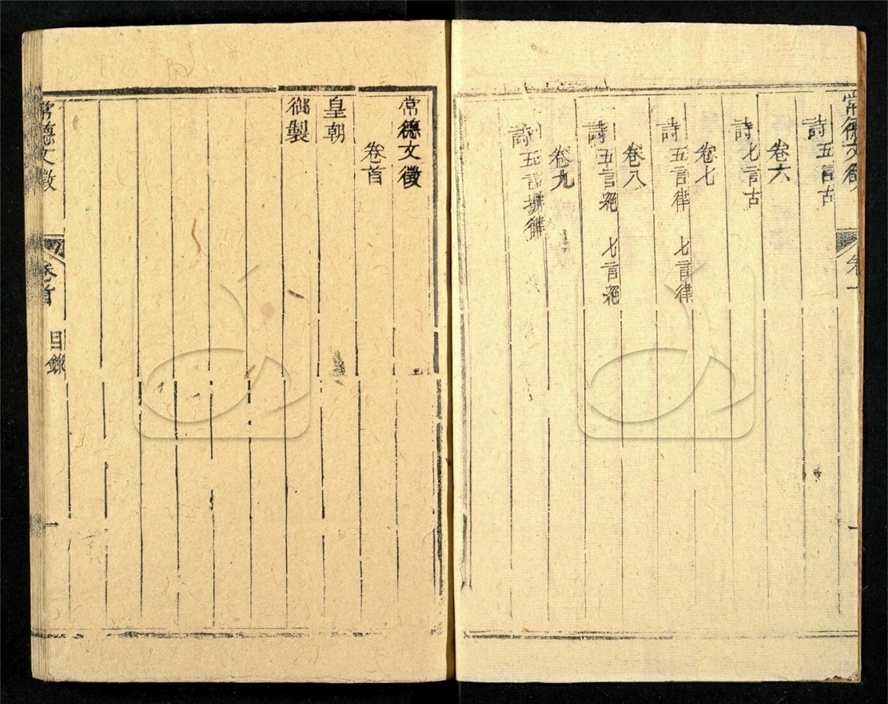 常德文徵
卷一
詩五言古
卷六
詩七言古
卷七
詩五言律 七言律
卷八
詩五言絕 七言絕
卷九
詩五言排律
常德文徵
卷首
皇朝
御製
常德文徵
卷首
目錄
一